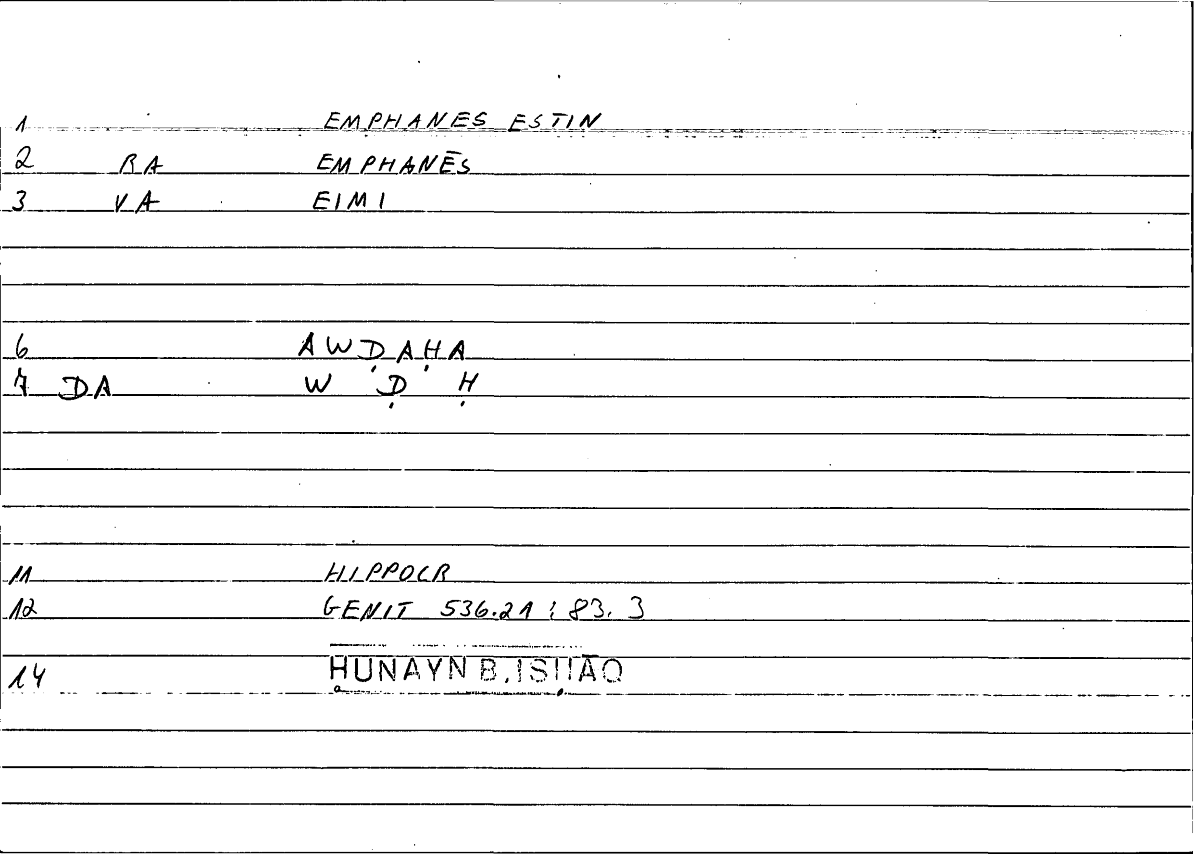 1 EMPHANES ESTIN
2 RA EMPHANĒS
3 VA EIMI
6 AWḌAḤA
7 DA W Ḍ Ḥ
11 HIPPOCR
12 GENIT 536.21 : 83. 3
14 ḤUNAYN B. ISḤĀQ